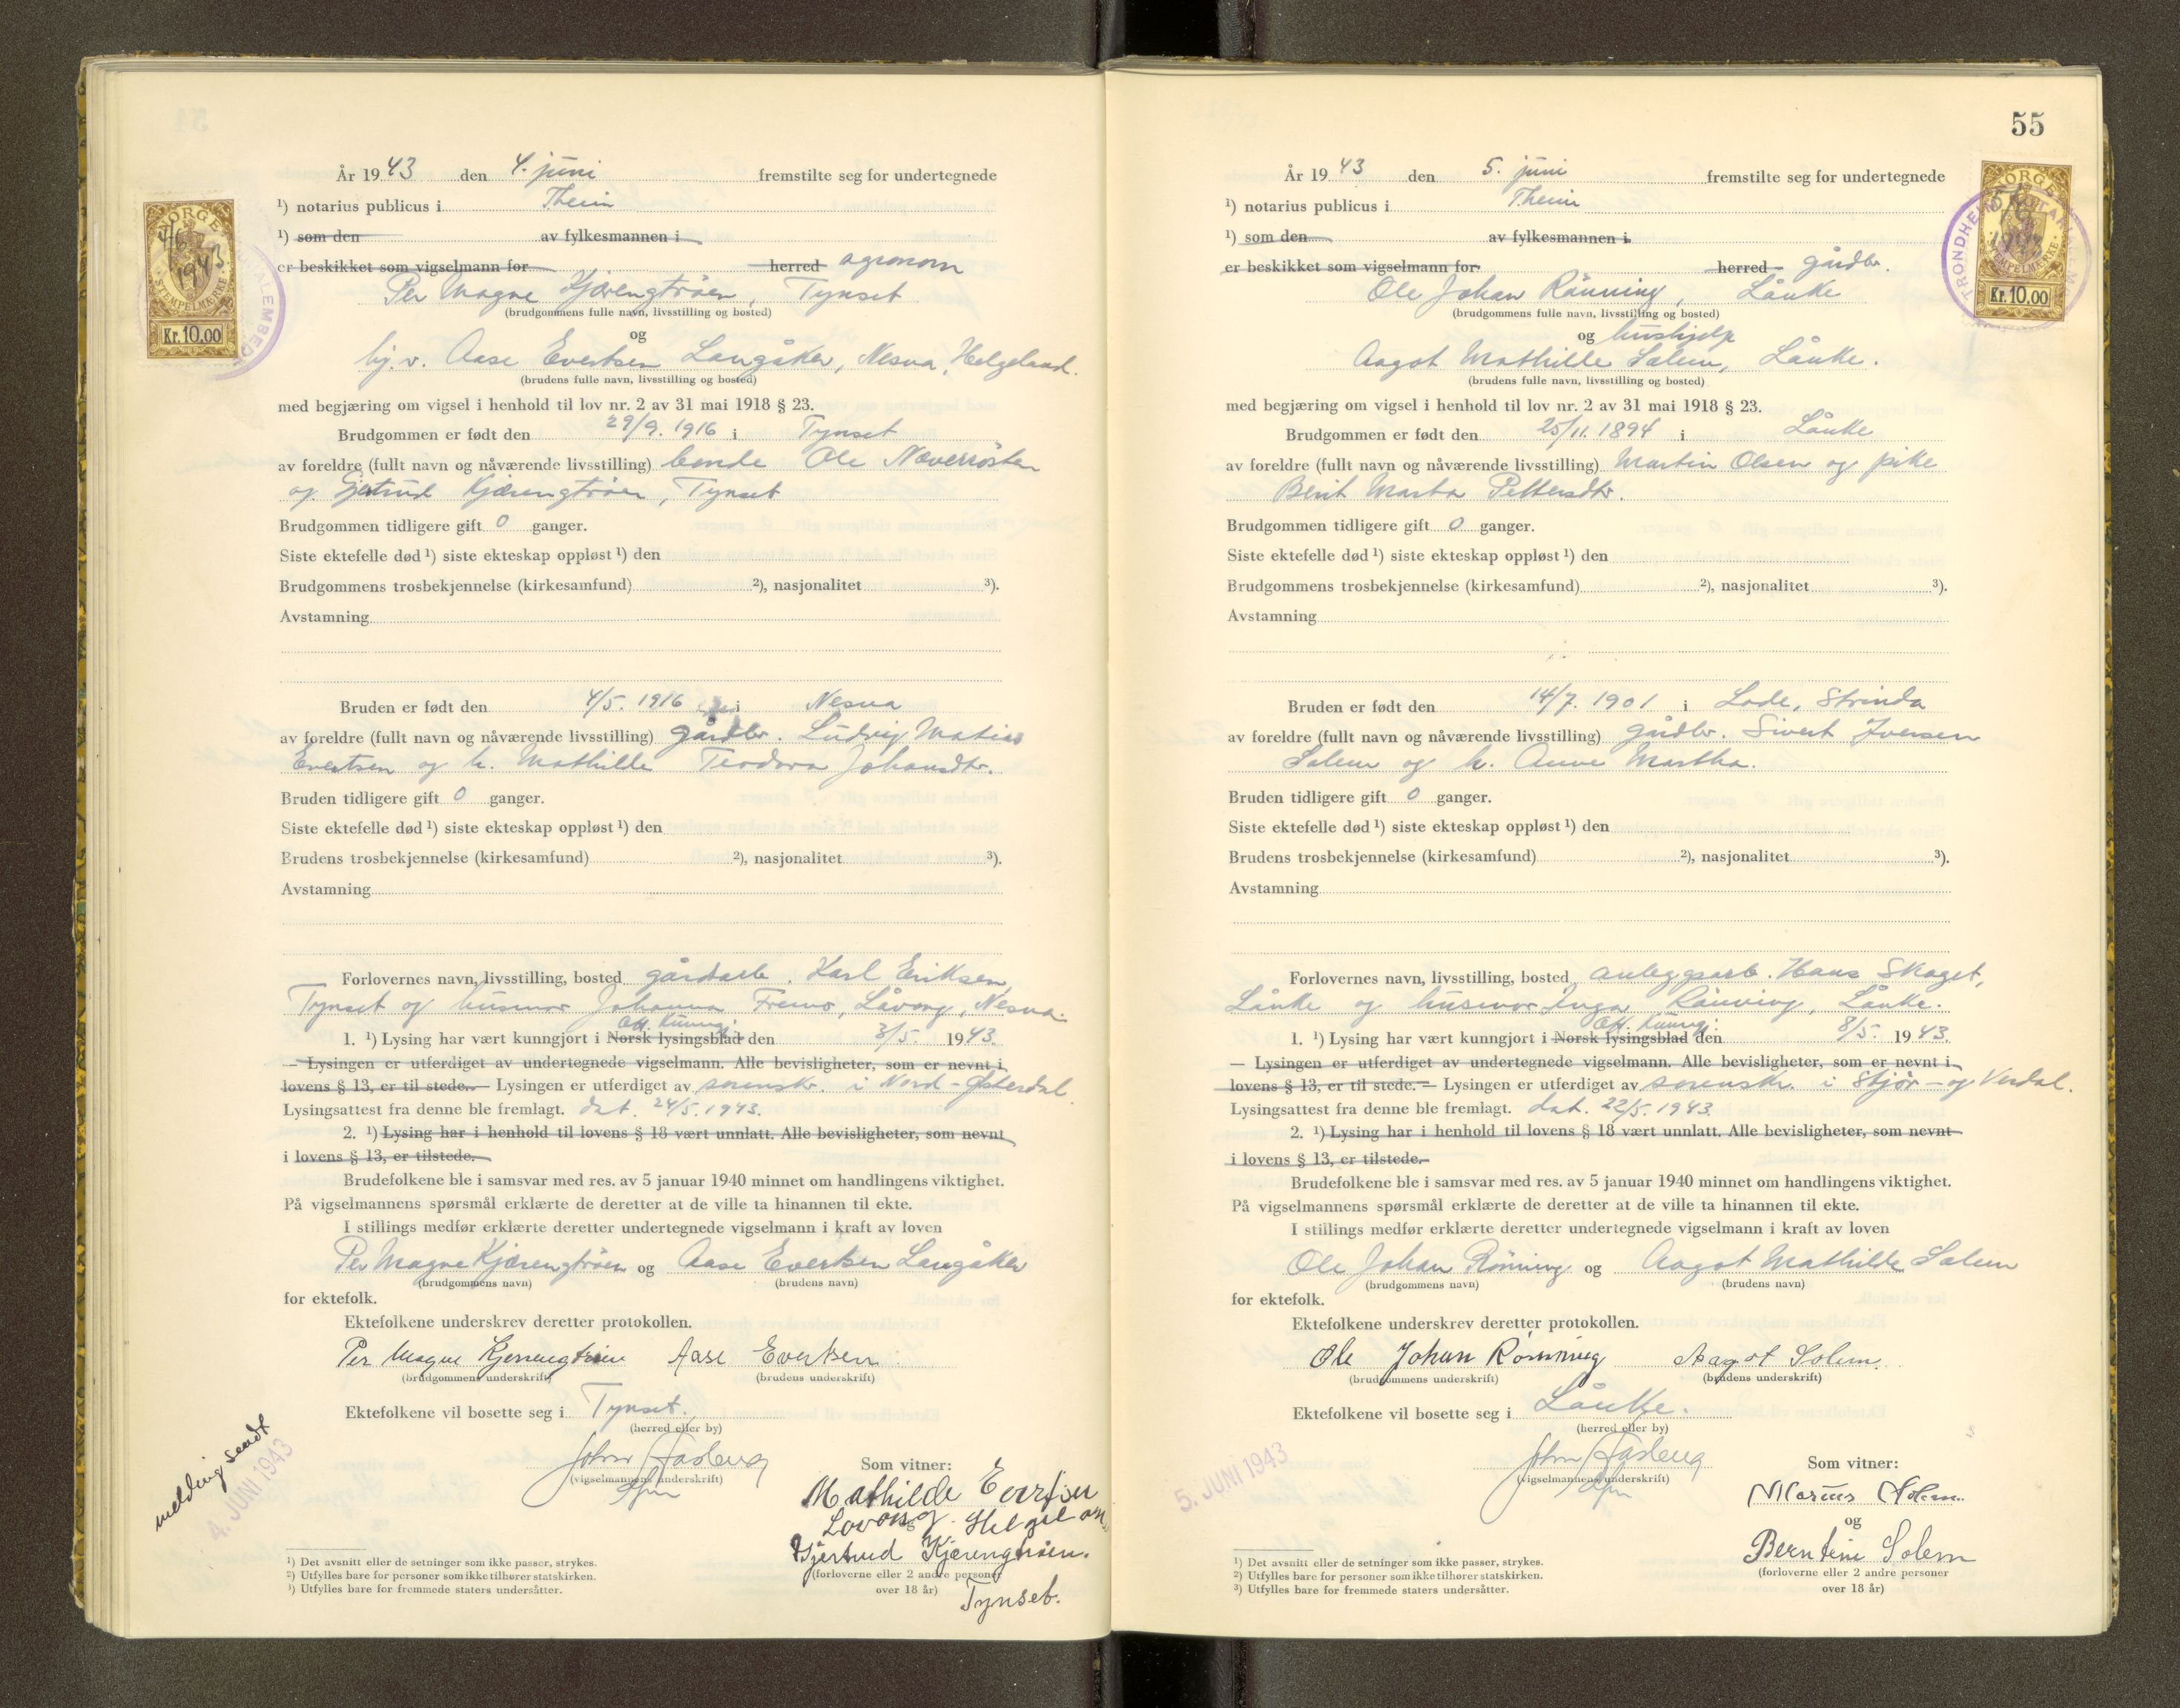 År 1943 den 4. juni fremstilte seg for undertegnede
¹) notarius publicus i Theim
¹) som den av fylkesmannen i
er beskikket som vigselmann for herred agronom
Per Magne Kjærengtrøen, Tynset
(brudgommens fulle navn, livsstilling og bosted)
og
hj. v. Aase Evertsen Langåker, Nesna, Helgeland.
(brudens fulle navn, livsstilling og bosted)
med begjæring om vigsel i henhold til lov nr. 2 av 31 mai 1918 § 23.
Brudgommen er født den 29/9. 1916 i Tynset
av foreldre (fullt navn og nåværende livsstilling) bonde Ole Næverrösten
og Gjertrud Kjærengtrøen, Tynset
Brudgommen tidligere gift 0 ganger.
Siste ektefelle død ¹) siste ekteskap oppløst ¹) den
Brudgommens trosbekjennelse (kirkesamfund) ²), nasjonalitet ³).
Avstamning
Bruden er født den 4/5. 1916 i Nesna
av foreldre (fullt navn og nåværende livsstilling) gårdbr. Ludvig Matias
Evertsen og h. Mathilde Teodora Johansdtr.
Bruden tidligere gift 0 ganger.
Siste ektefelle død ¹) siste ekteskap oppløst ¹) den
Brudens trosbekjennelse (kirkesamfund) ²), nasjonalitet ³).
Avstamning
Forlovernes navn, livsstilling, bosted gårdarb. Karl Eriksen,
Tynset og husmor Johanna Fremo, Låvong, Nesna.
Off. kunngj.
1. ¹) Lysing har vært kunngjort i Norsk lysingsblad den 3/5. 1943.
— Lysingen er utferdiget av undertegnede vigselmann. Alle bevisligheter, som er nevnt i
lovens § 13, er til stede. — Lysingen er utferdiget av sorenskr. i Nord-Østerdal.
Lysingsattest fra denne ble fremlagt. dat. 24/5. 1943.
2. ¹) Lysing har i henhold til lovens § 18 vært unnlatt. Alle bevisligheter, som nevnt
i lovens § 13, er tilstede.
Brudefolkene ble i samsvar med res. av 5 januar 1940 minnet om handlingens viktighet.
På vigselmannens spørsmål erklærte de deretter at de ville ta hinannen til ekte.
I stillings medfør erklærte deretter undertegnede vigselmann i kraft av loven
Per Magne Kjærengtrøen og Aase Evertsen Langåker
(brudgommens navn) (brudens navn)
for ektefolk.
Ektefolkene underskrev deretter protokollen.
Per Magne Kjerrengtrøen Aase Evertsen
(brudgommens underskrift) (brudens underskrift)
Ektefolkene vil bosette seg i Tynset.
(herred eller by)
John Aasberg
(vigselmannens underskrift)
Som vitner:
Mathilde Evertsen
Lovong. Helgelan
Gjertrud Kjærengtrøen.
(forloverne eller 2 andre personer
over 18 år)
Tynset.
melding sendt
4. JUNI 1943
¹) Det avsnitt eller de setninger som ikke passer, strykes.
²) Utfylles bare for personer som ikke tilhører statskirken.
³) Utfylles bare for fremmede staters undersåtter.
NORGE
4/6
1943
STEMPELMERKE
Kr. 10.00
55
År 1943 den 5. juni fremstilte seg for undertegnede
¹) notarius publicus i Theim
¹) som den av fylkesmannen i
er beskikket som vigselmann for herred gårdbr.
Ole Johan Rönning, Lånke
(brudgommens fulle navn, livsstilling og bosted)
og hushjelp
Aagot Mathilde Solem, Lånke.
(brudens fulle navn, livsstilling og bosted)
med begjæring om vigsel i henhold til lov nr. 2 av 31 mai 1918 § 23.
Brudgommen er født den 25/11. 1894 i Lånke
av foreldre (fullt navn og nåværende livsstilling) Martin Olsen og pike
Berit Marta Pettersdtr.
Brudgommen tidligere gift 0 ganger.
Siste ektefelle død ¹) siste ekteskap oppløst ¹) den
Brudgommens trosbekjennelse (kirkesamfund) ²), nasjonalitet ³).
Avstamning
Bruden er født den 14/7. 1901 i Lade, Strinda
av foreldre (fullt navn og nåværende livsstilling) gårdbr. Sivert Iversen
Solem og h. Anne Martha.
Bruden tidligere gift 0 ganger.
Siste ektefelle død ¹) siste ekteskap oppløst ¹) den
Brudens trosbekjennelse (kirkesamfund) ²), nasjonalitet ³).
Avstamning
Forlovernes navn, livsstilling, bosted anleggsarb. Hans Skaget,
Lånke og husmor Inga Rönning, Lånke.
Off. kunngj.
1. ¹) Lysing har vært kunngjort i Norsk lysingsblad den 8/5. 1943.
— Lysingen er utferdiget av undertegnede vigselmann. Alle bevisligheter, som er nevnt i
lovens § 13, er til stede. — Lysingen er utferdiget av sorenskr. i Stjør- og Verdal.
Lysingsattest fra denne ble fremlagt. dat. 22/5. 1943
2. ¹) Lysing har i henhold til lovens § 18 vært unnlatt. Alle bevisligheter, som nevnt
i lovens § 13, er tilstede.
Brudefolkene ble i samsvar med res. av 5 januar 1940 minnet om handlingens viktighet.
På vigselmannens spørsmål erklærte de deretter at de ville ta hinannen til ekte.
I stillings medfør erklærte deretter undertegnede vigselmann i kraft av loven
Ole Johan Rönning og Aagot Mathilde Solem
(brudgommens navn) (brudens navn)
for ektefolk.
Ektefolkene underskrev deretter protokollen.
Ole Johan Rönning Aagot Solem.
(brudgommens underskrift) (brudens underskrift)
Ektefolkene vil bosette seg i Lånke.
(herred eller by)
John Aasberg
(vigselmannens underskrift)
Som vitner:
Marius Solem.
og
Berntine Solem
(forloverne eller 2 andre personer
over 18 år)
5. JUNI 1943
¹) Det avsnitt eller de setninger som ikke passer, strykes.
²) Utfylles bare for personer som ikke tilhører statskirken.
³) Utfylles bare for fremmede staters undersåtter.
NORGE
5/6
1943
STEMPELMERKE
Kr. 10.00